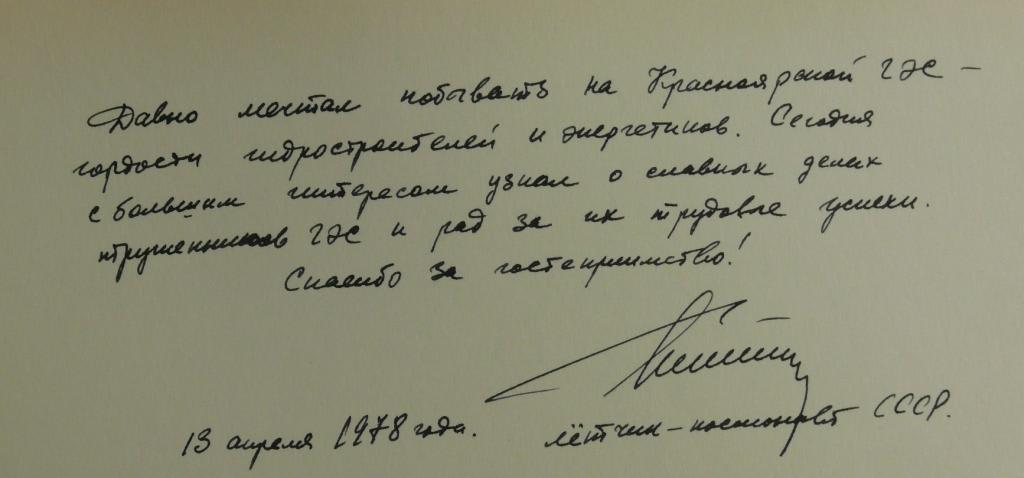 Давно мечтал побывать на Красноярской ГЭС –
гордости гидростроителей и энергетиков. Сегодня
с большим интересом узнал о славных делах
тружеников ГЭС и рад за их трудовые успехи.
Спасибо за гостеприимство!
13 апреля 1978 года. лётчик-космонавт СССР.